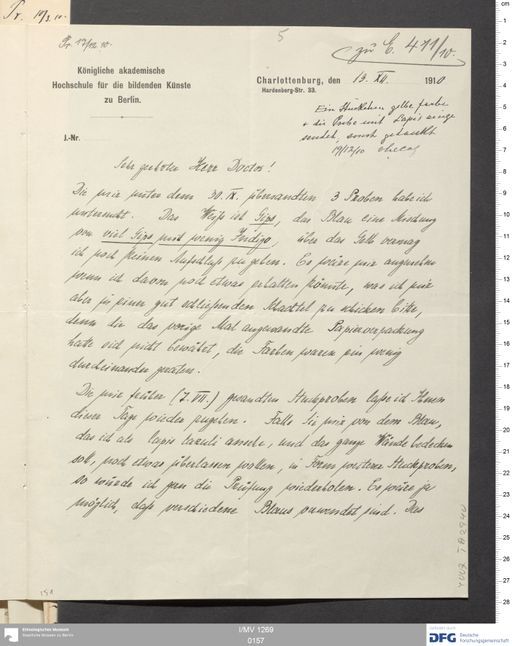 Pr. 17/12 10.
5
zu E. 411/10.
Königliche akademische
Hochschule für die bildenden Künste
zu Berlin.
Charlottenburg, den 13. XII. 1910
Hardenberg-Str. 33.
J.-Nr.
Ein Stückchen gelbe Farbe
+ die Probe mit Lapis
sendet, sonst gedankt
19/12/10
Sehr geehrter Herr Doctor!
Die mir unter dem 30. IX. übersandten 3 Proben habe ich
untersucht. Das Weiß ist Gips, das Blau eine Mischung
von viel Gips mit wenig Indigo, über das Gelb vermag
ich noch keinen Aufschluß zu geben. Es wäre mir angenehm
wenn ich davon noch etwas erhalten könnte, was ich mir
aber in einer gut schließenden Schachtel zu schicken bitte,
denn die das vorige Mal angewandte Papierverpackung
hatte sich nicht bewährt, die Farben waren ein wenig
durcheinander geraten.
Die mir früher (7. VII.) gesandten Stuckproben lasse ich Ihnen
dieser Tage wieder zugehen. Falls Sie mir von dem Blau,
das ich als lapis lazuli ansehe, und das ganze Wände bedecken
soll, noch etwas überlassen wollen, in Form weiterer Stuckproben,
so würde ich gern die Prüfung wiederholen. Es wäre ja
möglich, daß verschiedene Blaus verwendet sind. Das
I/MV 1269
0157
Ethnologisches Museum
Staatliche Museen zu Berlin
DFG Deutsche
Forschungsgemeinschaft